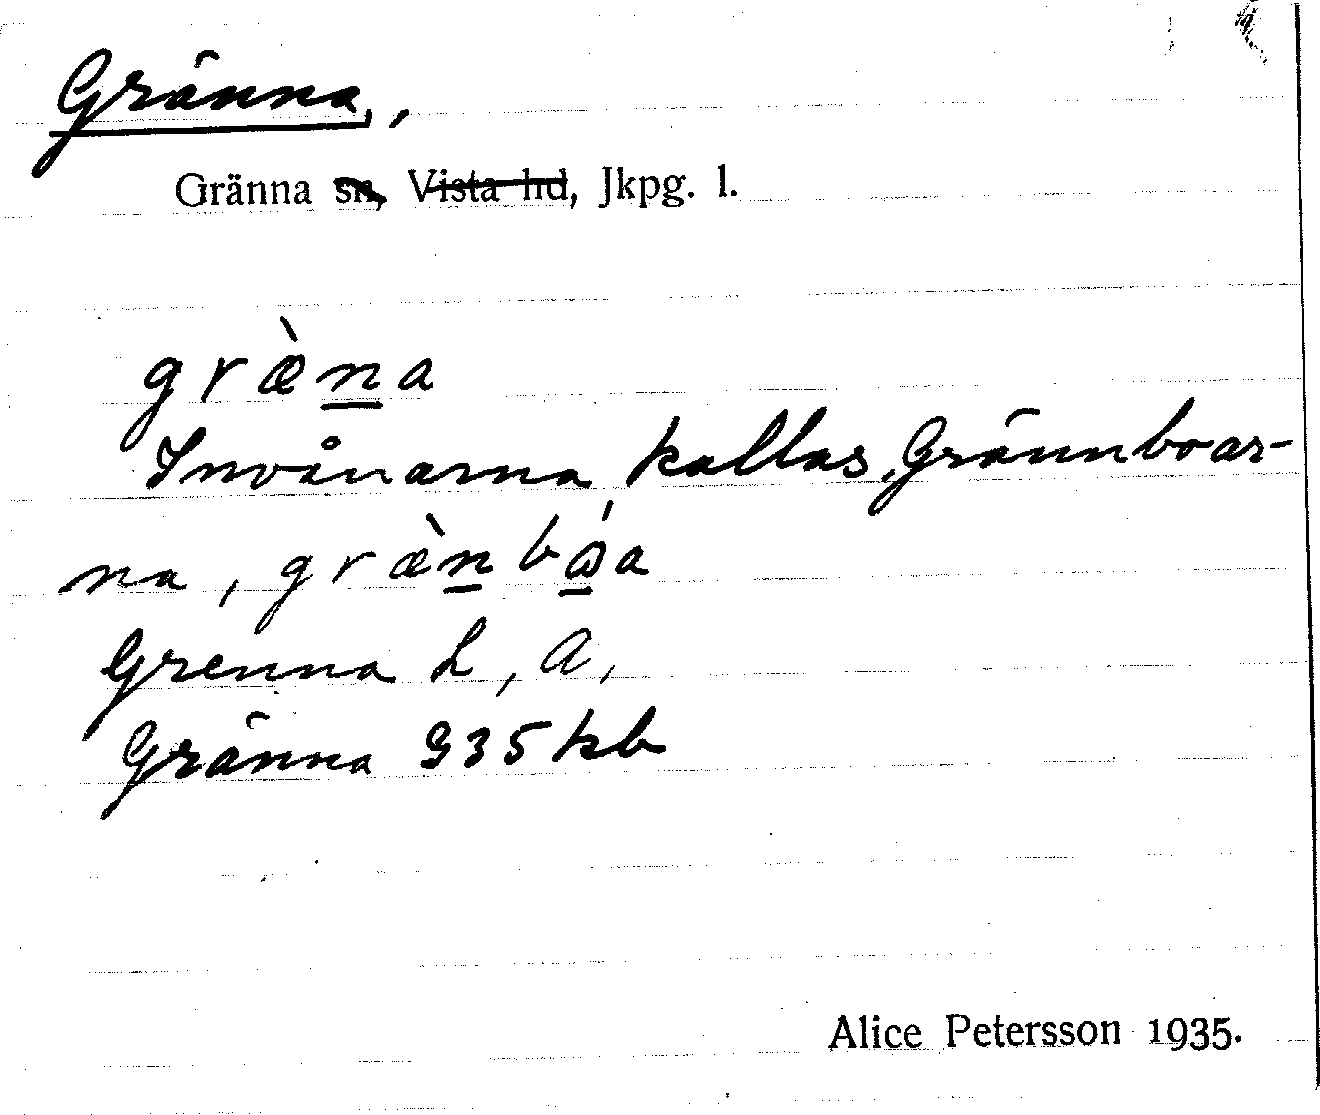 Gränna,
Gränna sn, Vista hd, Jkpg. l.
græ̀n̲a
Invånarna kallas Grännboar-
na, græ̀n̲bɷ̲́a
Grenna L, A,
Gränna G35kb
Alice Petersson 1935.